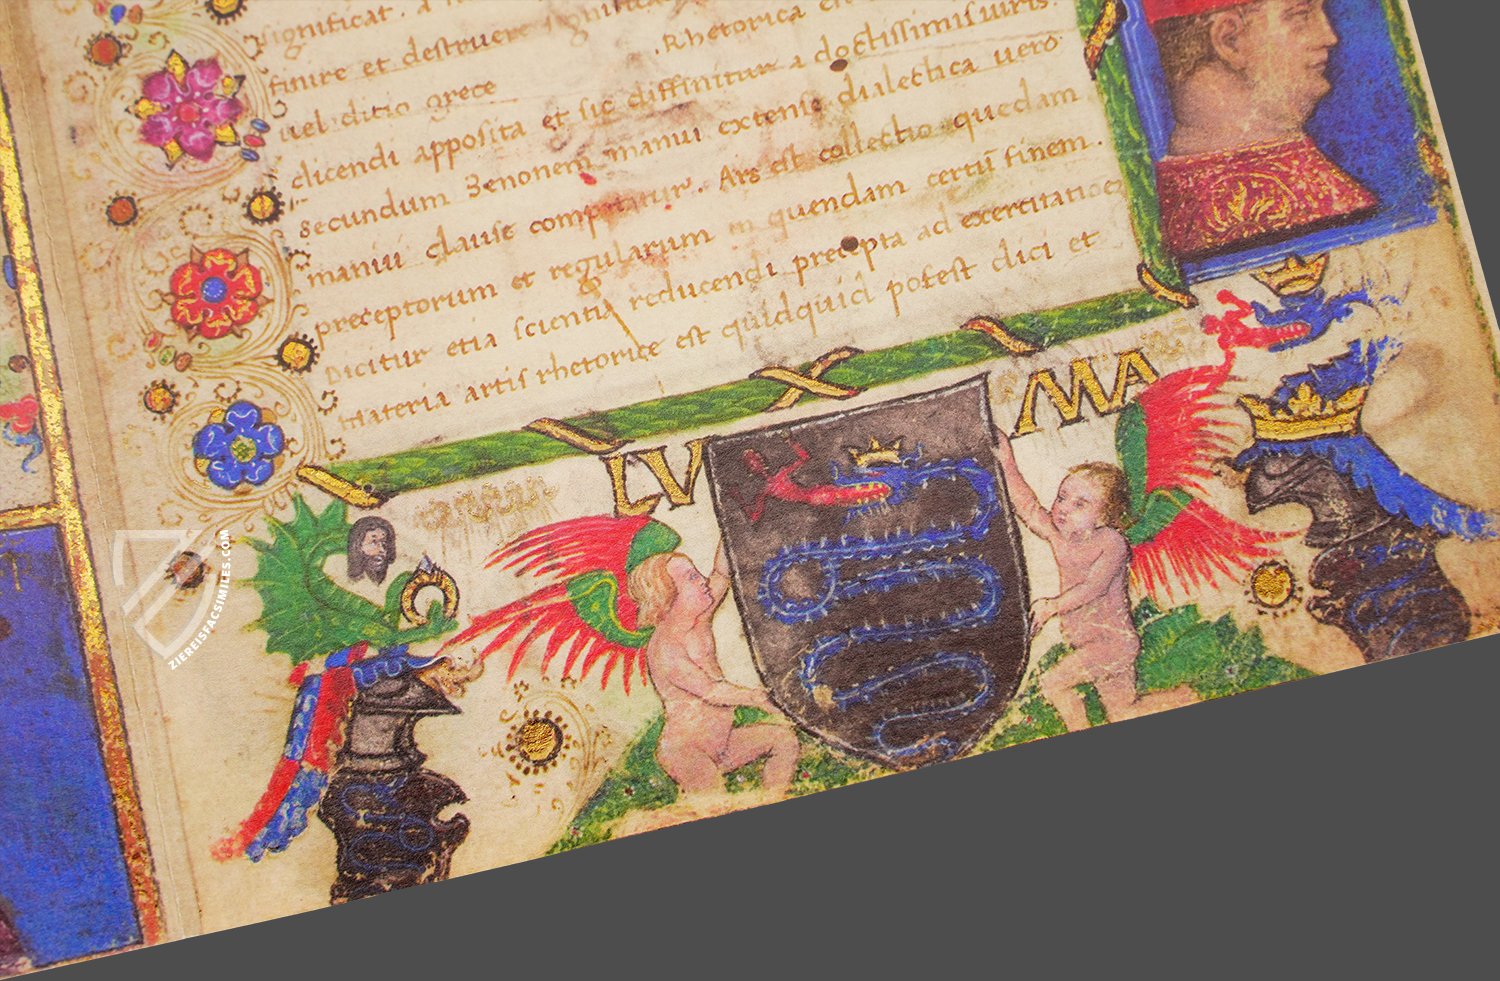 significat. a
finire et destruere significa
.Rhetorica
uel ditio grece
dicendi apposita et sic diffinitur a doctissimis uiris.
secundum Zenonem manui extense dialectica uero
manui clause comparatur. Ars est collectio quedam
preceptorum et regularum in quendam certũ finem.
Dicitur etiã scientia reducendi precepta ad exercitationem
Materia artis rhetorice est quidquid potest dici et
LV MA
ZIEREISFACSIMILES.COM